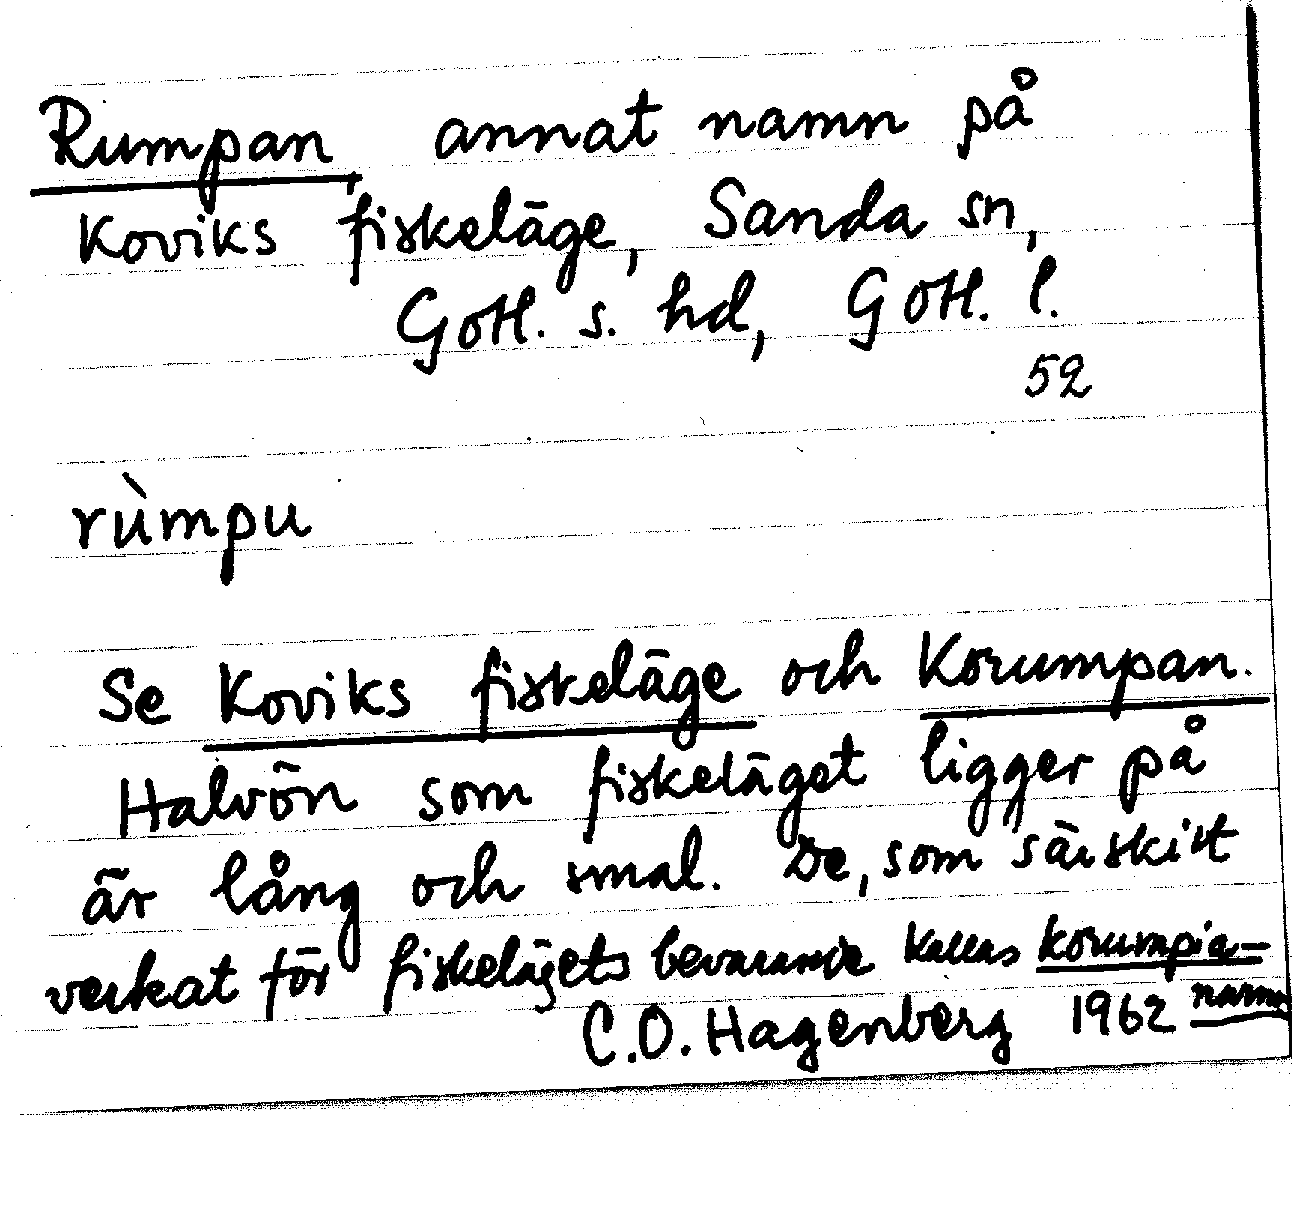 Rumpan, annat namn på
Koviks fiskeläge, Sanda sn,
Gotl. s. hd, Gotl. l.
52
rùmpu
Se Koviks fiskeläge och Korumpan.
Halvön som fiskeläget ligger på
är lång och smal. De, som särskilt
verkat för fiskelägets bevarande kallas korumpia-
narna
C.O. Hagenberg 1962